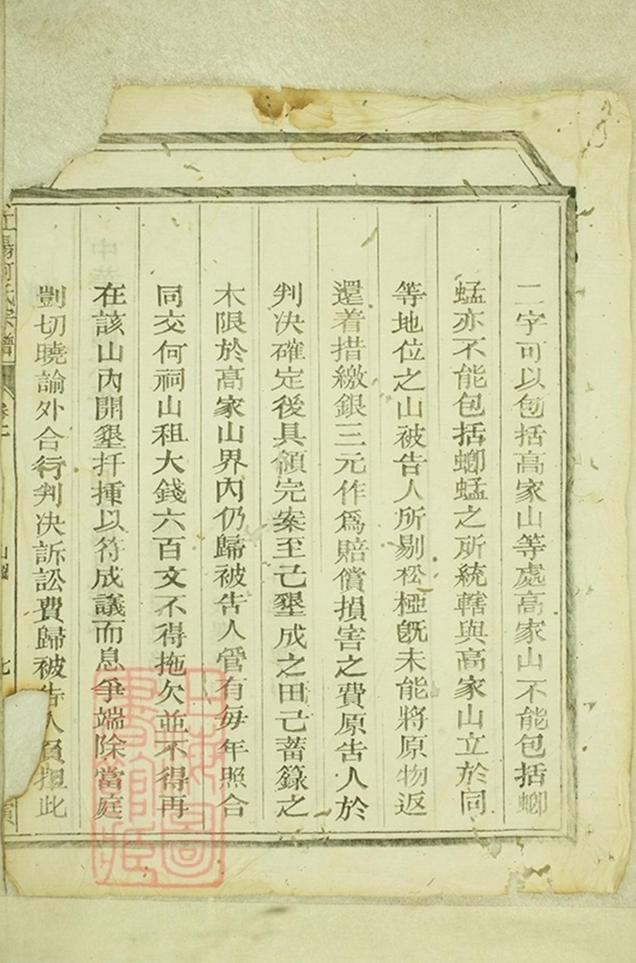 二字可以包括高家山等處高家山不能包括螂
蜢亦不能包括螂蜢之所統轄與高家山立於同
等地位之山被告人所剔松椏既未能將原物返
還着措繳銀三元作爲賠償損害之費原告人於
判决確定後具領完案至己墾成之田己蓄籙之
木限於高家山界內仍歸被告人管有每年照合
同交何祠山租大錢六百文不得拖欠並不得再
在該山內開墾扦揷以符成議而息爭端除當庭
剴切曉諭外合行判决訴訟費歸被告人負担此
江陽何氏宗譜